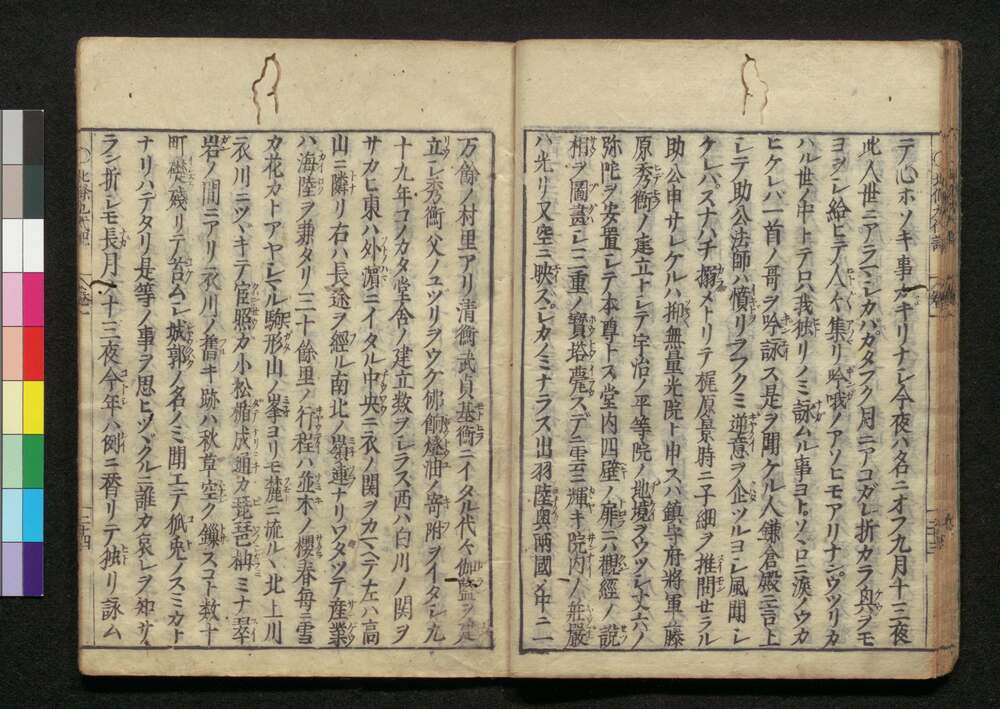 テ心ホソキ事カキリナシ今夜ハ名ニオフ九月十三夜
此人世ニアラマシカバカタフク月ニアコガレ折カラ興ヲモ
ヨヲシ給ヒテ人々集リ吟哦ノアソヒモアリナンウツリカ
ハル世ノ中トテ只我独リノミ詠ムル事ヨトソヾロニ涙ノウカ
ヒケレバ一首ノ哥ヲ吟詠ス是ヲ聞ケル人鎌倉殿ニ言上
シテ助公法師ハ憤リヲフクミ逆意ヲ企ツルヨシ風聞シ
ケレバスナハチ搦メトリテ梶原景時ニ子細ヲ推問セラル
助公申サレケルハ抑無量光院ト申スハ鎮守府将軍藤
原秀衡ノ建立トシテ宇治ノ平等院ノ地境ヲウツシ丈六ノ
弥陀ヲ安置シテ本尊トス堂内四壁ノ扉ニハ観經ノ説
相ヲ圖畫シ三重ノ寳塔甍スデニ雲ニ輝キ院内ノ荘嚴
ハ光リ又空ニ映スシカノミナラス出羽陸奥両國ノ中ニ一
万餘ノ村里アリ清衡武貞基衡ニイタル代々伽藍ヲ建
立シ秀衡父ノユヅリヲウケ佛餉燈油ノ寄附ヲイタシ九
十九年コノカタ堂舎ノ建立数ヲシラス西ハ白川ノ関ヲ
サカヒ東ハ外濵ニイタル中央ニ衣ノ関ヲカマヘテ左ハ高
山ニ隣リ右ハ長途ヲ經ル南北ノ嶺連ナリワタツテ産業
ハ海陸ヲ兼タリ三十餘里ノ行程ハ並木ノ櫻春毎ニ雪
カ花カトアヤシマル駒形山ノ峯ヨリモ麓ニ流ルヽ北上川
衣川ニツヾキテ官照カ小松楯成通カ琵琶柵ミナ翠
岩ノ間ニアリ衣川ノ舊キ跡ハ秋草空ク鎖スコト数十
町礎残リテ苔ムシ城郭ノ名ノミ聞エテ狐兎ノスミカト
ナリハテタリ是等ノ事ヲ思ヒツヾクルニ誰カ哀レヲ知サ
ラン折シモ長月ノ十三夜今年ハ例ニ替リテ独リ詠ム